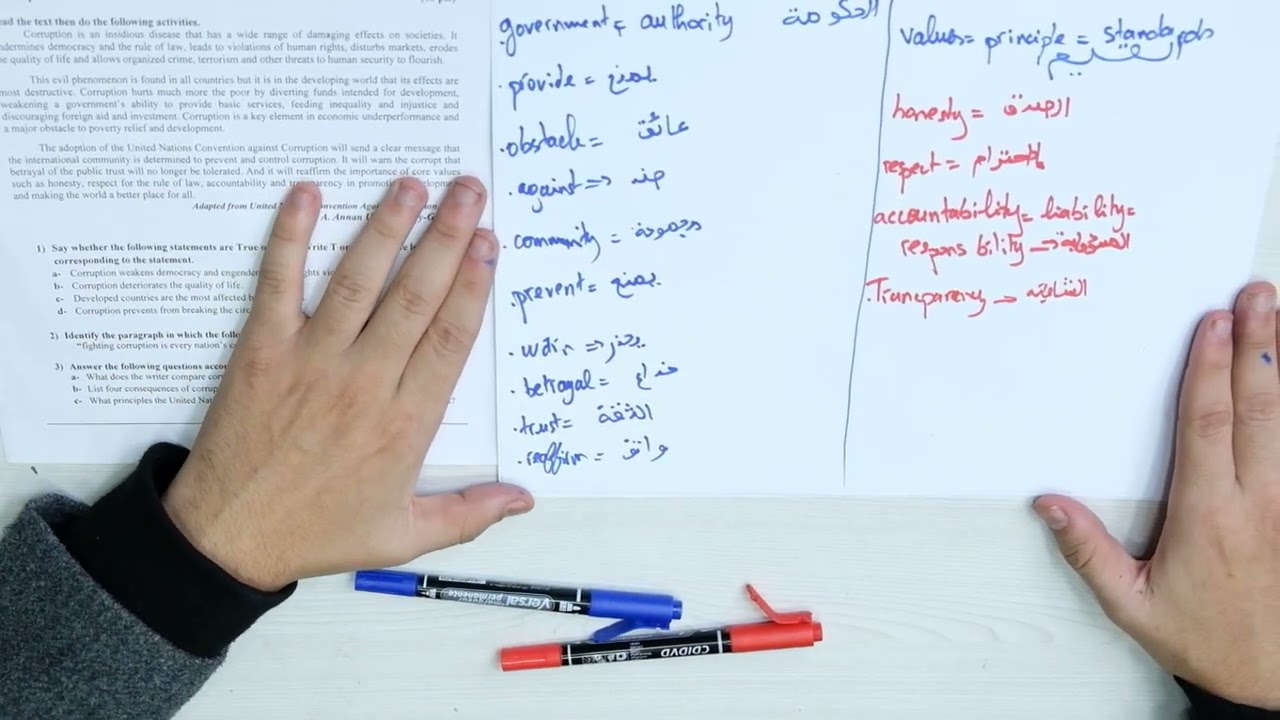 ead the text then do the following activities.
Corruption is an insidious disease that has a wide range of damaging effects on societies. It
ndermines democracy and the rule of law, leads to violations of human rights, disturbs markets, erodes
he quality of life and allows organized crime, terrorism and other threats to human security to flourish.
This evil phenomenon is found in all countries but it is in the developing world that its effects are
most destructive. Corruption hurts much more the poor by diverting funds intended for development,
weakening a government's ability to provide basic services, feeding inequality and injustice and
discouraging foreign aid and investment. Corruption is a key element in economic underperformance and
a major obstacle to poverty relief and development.
The adoption of the United Nations Convention against Corruption will send a clear message that
the international community is determined to prevent and control corruption. It will warn the corrupt that
betrayal of the public trust will no longer be tolerated. And it will reaffirm the importance of core values
such as honesty, respect for the rule of law, accountability and tr parency in promoti
and making the world a better place for all.
Adapted from United onvention Aga
A. Annan U
1) Say whether the following statements are True o rite T or
corresponding to the statement.
a- Corruption weakens democracy and engend ghts vio
b- Corruption deteriorates the quality of life.
c- Developed countries are the most affected b
d- Corruption prevents from breaking the circ
2) Identify the paragraph in which the foll
"fighting corruption is every nation's c
3) Answer the following questions acco
a- What does the writer compare cor
b- List four consequences of corrup
c- What principles the United Nat ?
government & authority الحكومة
. provide = يمنح
. obstacle = عائق
. against => ضد
. community = مجموعة
. prevent = يمنع
. warn => يحذر
. betrayal = خداع
. trust = الثقة
. reaffirm = واثق
values = principle = standards
القيم
honesty = الصدق
respect = الإحترام
accountability = liability =
responsbility → المسؤولية
. Transparency → الشفافية
Versal
marqueur permanente
CD/DVD